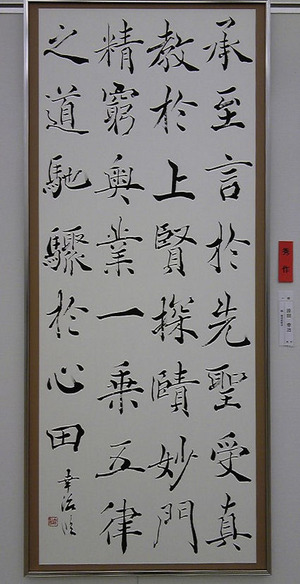 承至言於先聖受真
教於上賢探賾妙門
精窮奧業一乗五律
之道馳驟於心田
幸治臨
秀作